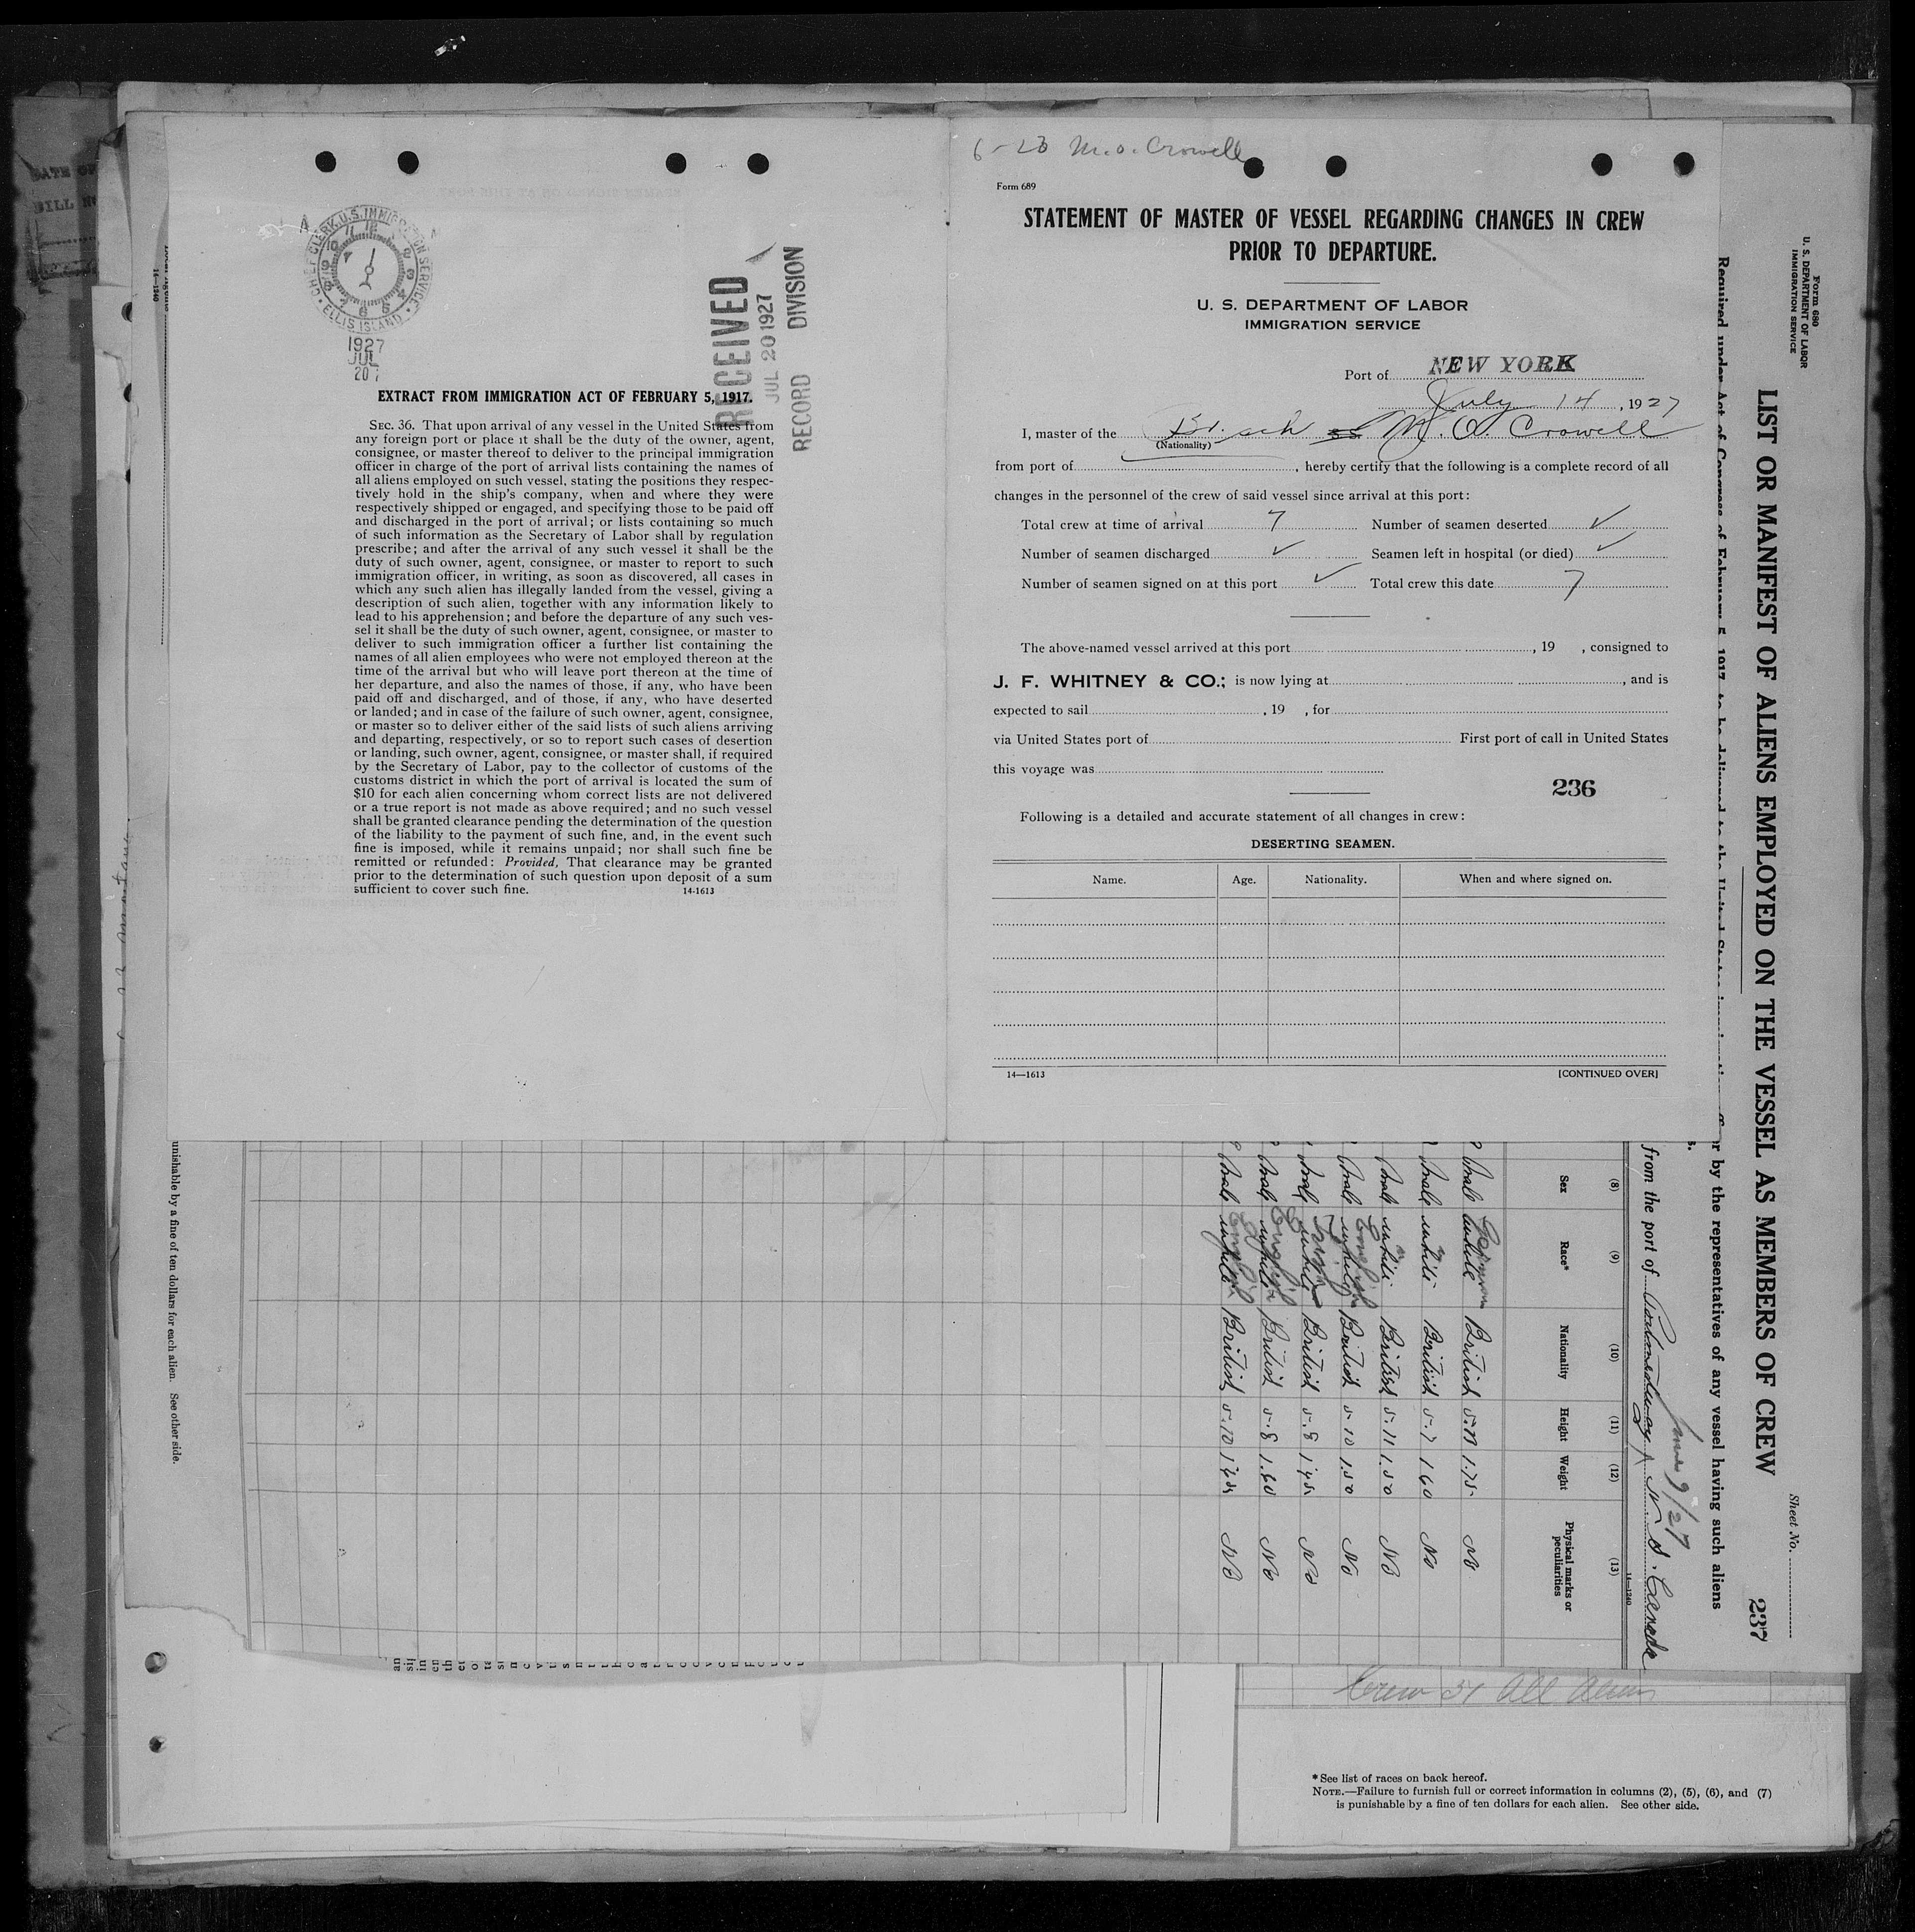 CHIEF CLERK, U.S. IMMIGRATION SERVICE
ELLIS ISLAND
1927
JUL
20
RECEIVED
JUL 20 1927
RECORD DIVISION
EXTRACT FROM IMMIGRATION ACT OF FEBRUARY 5, 1917.
SEC. 36. That upon arrival of any vessel in the United States from
any foreign port or place it shall be the duty of the owner, agent,
consignee, or master thereof to deliver to the principal immigration
officer in charge of the port of arrival lists containing the names of
all aliens employed on such vessel, stating the positions they respec-
tively hold in the ship's company, when and where they were
respectively shipped or engaged, and specifying those to be paid off
and discharged in the port of arrival; or lists containing so much
of such information as the Secretary of Labor shall by regulation
prescribe; and after the arrival of any such vessel it shall be the
duty of such owner, agent, consignee, or master to report to such
immigration officer, in writing, as soon as discovered, all cases in
which any such alien has illegally landed from the vessel, giving a
description of such alien, together with any information likely to
lead to his apprehension; and before the departure of any such ves-
sel it shall be the duty of such owner, agent, consignee, or master to
deliver to such immigration officer a further list containing the
names of all alien employees who were not employed thereon at the
time of the arrival but who will leave port thereon at the time of
her departure, and also the names of those, if any, who have been
paid off and discharged, and of those, if any, who have deserted
or landed; and in case of the failure of such owner, agent, consignee,
or master so to deliver either of the said lists of such aliens arriving
and departing, respectively, or so to report such cases of desertion
or landing, such owner, agent, consignee, or master shall, if required
by the Secretary of Labor, pay to the collector of customs of the
customs district in which the port of arrival is located the sum of
$10 for each alien concerning whom correct lists are not delivered
or a true report is not made as above required; and no such vessel
shall be granted clearance pending the determination of the question
of the liability to the payment of such fine, and, in the event such
fine is imposed, while it remains unpaid; nor shall such fine be
remitted or refunded: Provided, That clearance may be granted
prior to the determination of such question upon deposit of a sum
sufficient to cover such fine. 14-1613
M.O. Crowell
Form 689
STATEMENT OF MASTER OF VESSEL REGARDING CHANGES IN CREW
PRIOR TO DEPARTURE.
U. S. DEPARTMENT OF LABOR
IMMIGRATION SERVICE
Port of NEW YORK
July 14, 1927
I, master of the Br. sch M. O. Crowell
(Nationality)
from port of , hereby certify that the following is a complete record of all
changes in the personnel of the crew of said vessel since arrival at this port:
Total crew at time of arrival 7 Number of seamen deserted ✓
Number of seamen discharged ✓ Seamen left in hospital (or died) ✓
Number of seamen signed on at this port ✓ Total crew this date 7
The above-named vessel arrived at this port , 19 , consigned to
J. F. WHITNEY & CO.; is now lying at , and is
expected to sail , 19 , for
via United States port of First port of call in United States
this voyage was
236
Following is a detailed and accurate statement of all changes in crew:
DESERTING SEAMEN.
Name. Age. Nationality. When and where signed on.
14—1613 [CONTINUED OVER]
Form 680
U. S. DEPARTMENT OF LABOR
IMMIGRATION SERVICE
Sheet No.
LIST OR MANIFEST OF ALIENS EMPLOYED ON THE VESSEL AS MEMBERS OF CREW
237
by the representatives of any vessel having such aliens
June 9/27
from the port of N S. Canada
14—1240
(8) (9) (10) (11) (12) (13)
Sex Race* Nationality Height Weight Physical marks or peculiarities
Male white German British 1.75 No
Male white British 5.7 160 No
Male white British 5.11 1.50 No
Male white English British 5.10 1.50 No
Male white British 5.8 No
Male white English British 5.8 1.60 No
Male white English British 5.10 No
unishable by a fine of ten dollars for each alien. See other side.
14—1240
Crew 31 All Aliens
*See list of races on back hereof.
NOTE.—Failure to furnish full or correct information in columns (2), (5), (6), and (7)
is punishable by a fine of ten dollars for each alien. See other side.